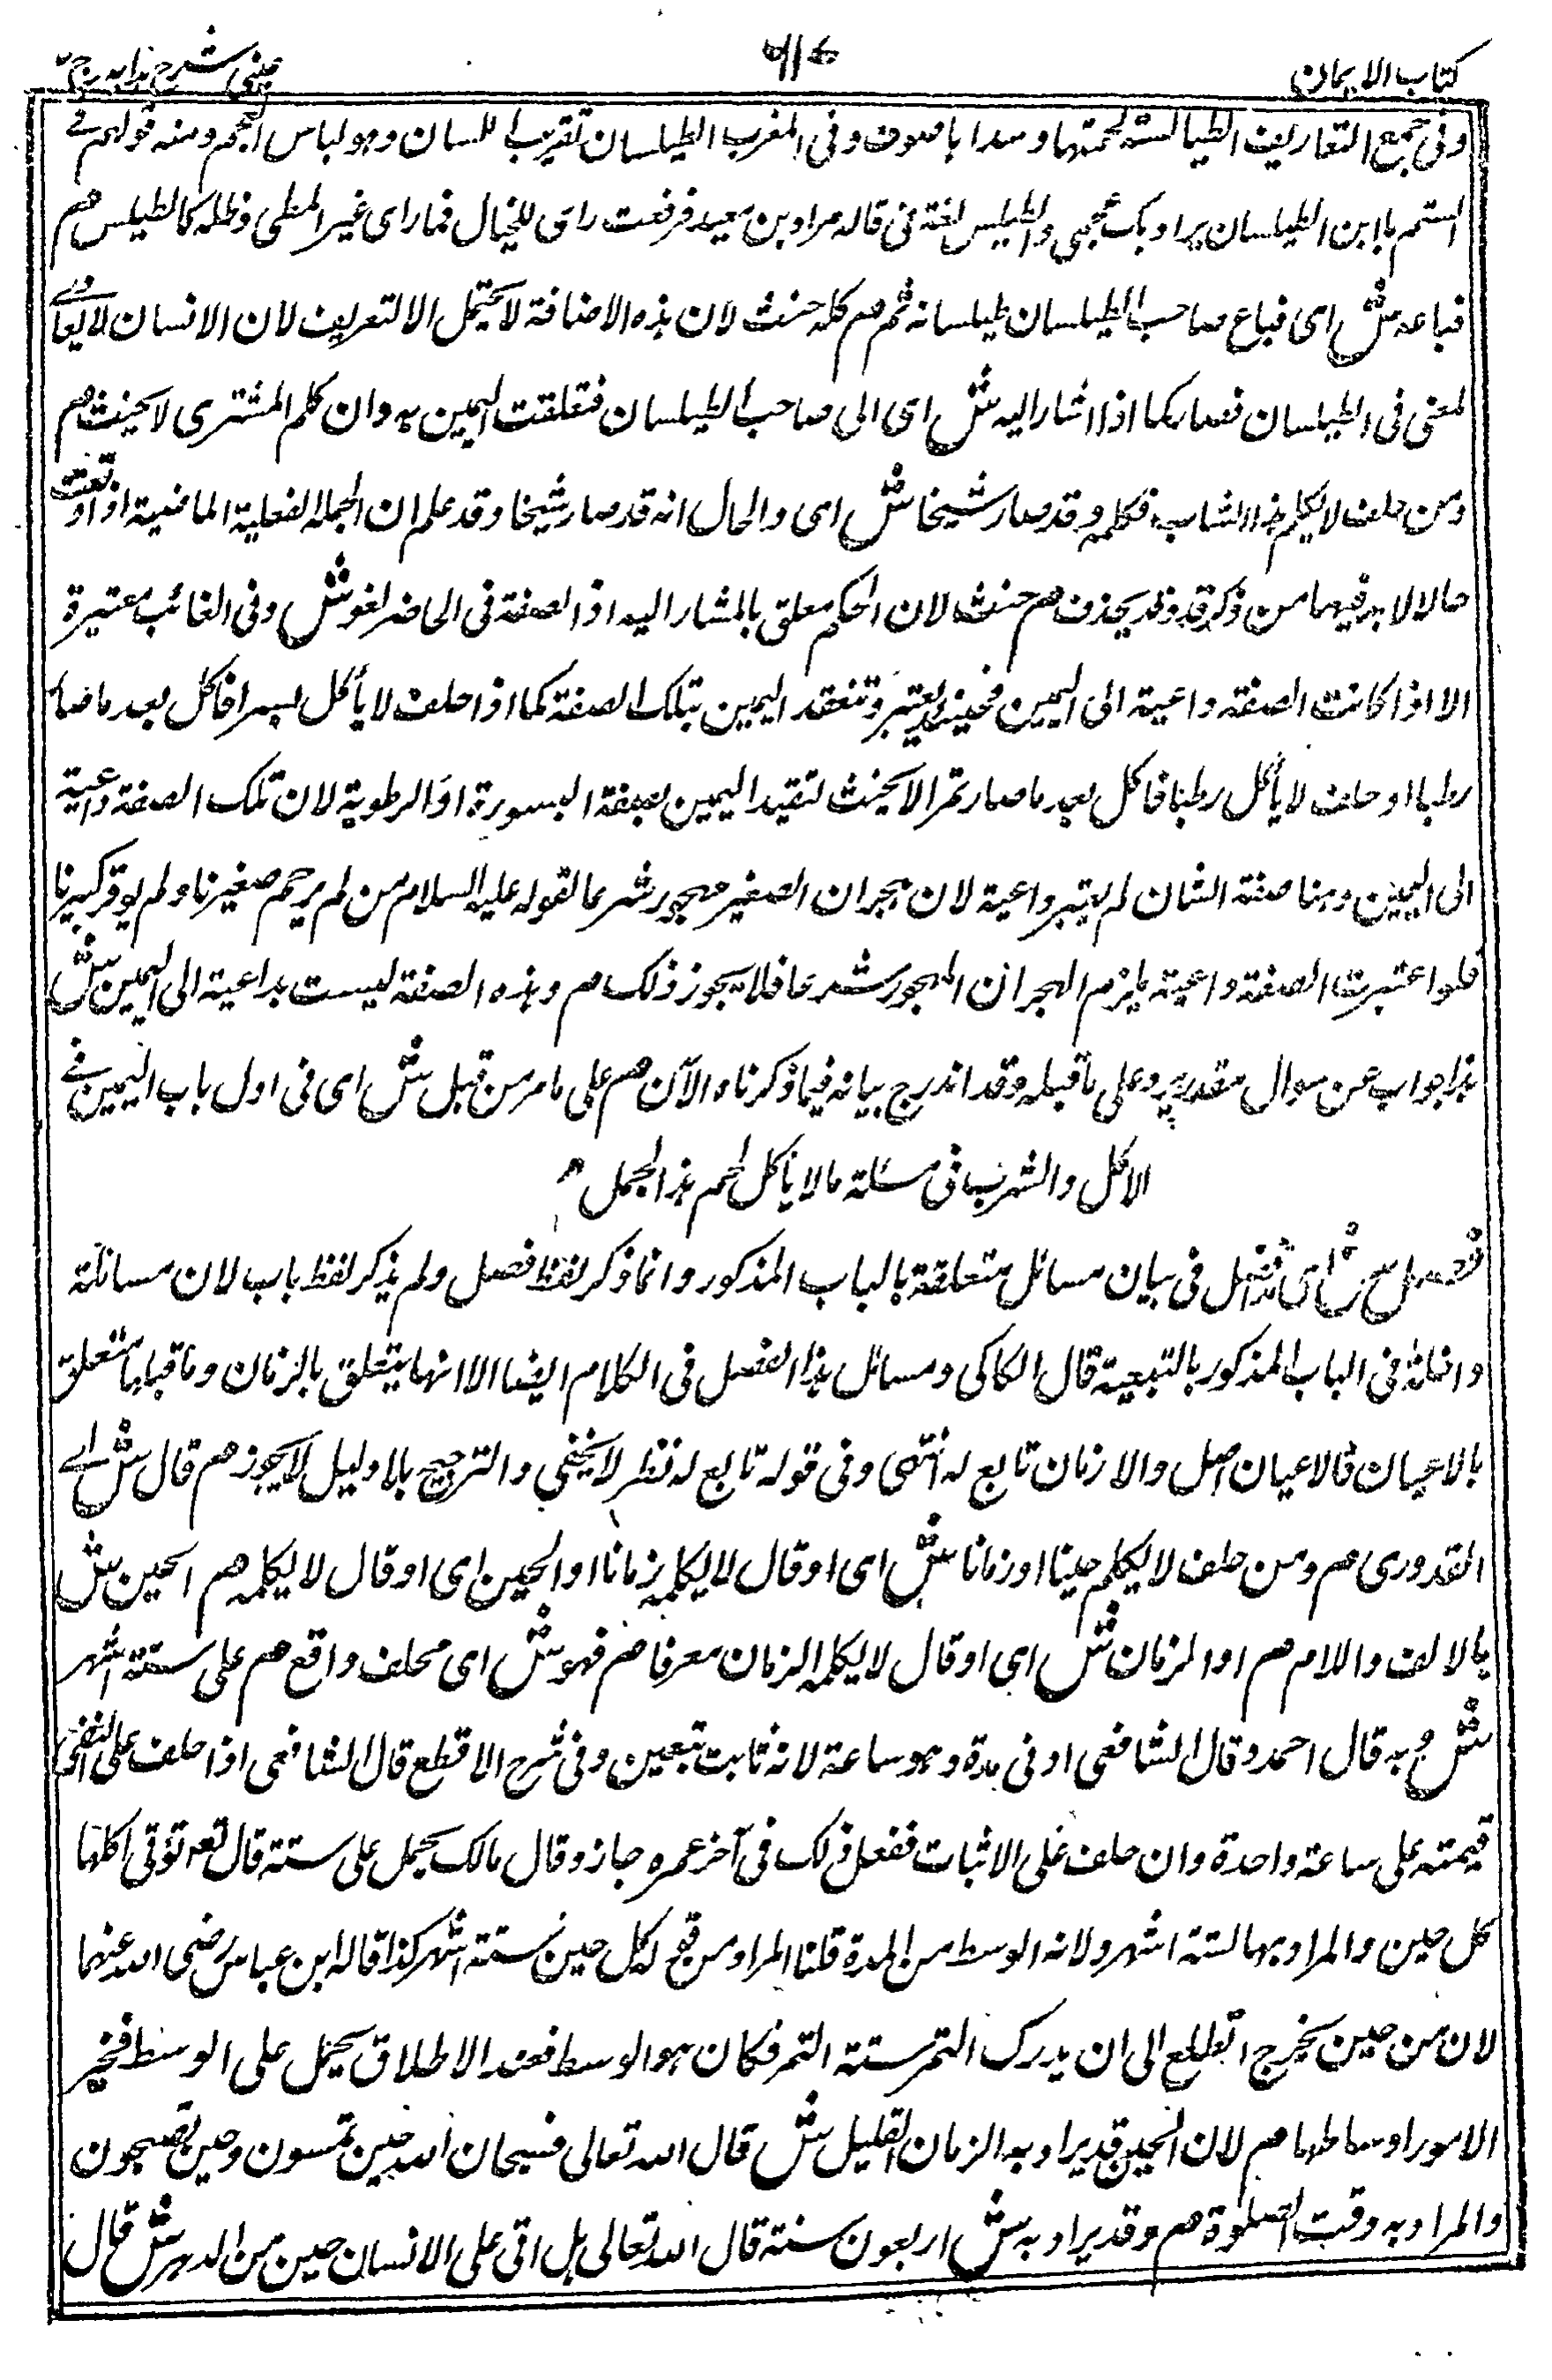 كتاب الايمان
عينى شرح هدايه ج ٢
وفى جمع التعاريف الطيالسة لحمتها وسداها صوف وفى المغرب الطيلسان تقريب للسان وهو لباس العجم ومنه قولهم فى
الشتم يا ابن الطيلسان يراد بك عجمى والطيلس لغة فى قاله مراد بن سعيد فرفعت راى للخيال فما راى غير المطى وظله كالطيلس هم
فباعه ش اى فباع صاحب الطيلسان طيلسانه ثم هم كلمه حنث لان هذه الاضافة لا يحتمل الا التعريف لان الانسان لا يعادى
لمعنى فى الطيلسان فصار كما اذا اشار اليه ش اى الى صاحب الطيلسان فتعلقت اليمين به وان كلم المشترى لا يحنث هم
ومن حلف لا يكلم هذا الشاب فكلمه وقد صار شيخا ش اى والحال انه قد صار شيخا وقد علم ان الجملة الفعلية الماضية اذا وقعت
حالا لا بد فيها من ذكر قد وقد يحذف هم حنث لان الحكم معلق بالمشار اليه اذ الصفة فى الحاضر لغو ش وفى الغائب معتبرة
الا اذا كانت الصفة داعية الى اليمين فحينئذ يعتبر وتنعقد اليمين بتلك الصفة كما اذا حلف لا يأكل بسرا فاكل بعد ما صار
رطبا او حلف لا يأكل رطبا فاكل بعد ما صار تمرا لا يحنث لتقيد اليمين بصفة البسورة او الرطوبة لان تلك الصفة داعية
الى اليمين وهنا صفة الشان لم يعتبر داعية لان هجران الصغير مهجور شرعا لقوله عليه السلام من لم يرحم صغيرنا ولم يوقر كبيرنا
فلو اعتبرت الصفة داعية يلزم الهجران المهجور شرعا فلا يجوز ذلك هم وهذه الصفة ليست بداعية الى اليمين ش
هذا جواب عن سوال مقدر يرد على ما قبله وقد اندرج بيانه فيما ذكرناه الآن هم على ما مر من قبل ش اى فى اول باب اليمين فى
الاكل والشرب فى مسئلة ما لا يأكل لحم هذا الجمل
فصل ش اى هذا فصل فى بيان مسائل متعلقة بالباب المذكور وانما ذكر لفظ فصل ولم يذكر لفظ باب لان مسائلة
داخلة فى الباب المذكور بالتبعية قال الكاكى ومسائل هذا الفصل فى الكلام ايضا الا انها يتعلق بالزمان وما قبلها متعلق
بالاعيان فالاعيان اصل والازمان تابع له انتهى وفى قوله تابع له نظر لا يخفى والترجيح بلا دليل لا يجوز هم قال ش اى
القدورى هم ومن حلف لا يكلم حينا او زمانا ش اى او قال لا يكلمه زمانا او الحين اى او قال لا يكلمه هم الحين ش
بالالف واللام هم او الزمان ش اى او قال لا يكلمه الزمان معرفا هم فهو ش اى محلف واقع هم على ستة اشهر
ش وبه قال احمد وقال الشافعى ادنى مدة وهو ساعة لانه ثابت بتعين وفى شرح الاقطع قال الشافعى اذا حلف على النفى
قيمته على ساعة واحدة وان حلف على الاثبات ففعل ذلك فى آخر عمره جاز وقال مالك يحمل على سنة قال تعه تؤتى اكلها
كل حين والمراد بها ستة اشهر ولانه الوسط من المدة قلنا المراد من قع كل حين ستة اشهر كذا قاله ابن عباس رضى الله عنهما
لان من حين يخرج الطلع الى ان يدرك التمر ستة التمر فكان هو الوسط فعند الاطلاق يحمل على الوسط فخير
الامور اوساطها هم لان الحين قد يراد به الزمان القليل ش قال الله تعالى فسبحان الله حين تمسون وحين تصبحون
والمراد به وقت الصلوة هم وقد يراد به ش اربعون سنة قال الله تعالى هل اتى على الانسان حين من الدهر ش قال